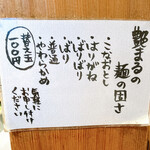 艶まるの
麺の固さ
・こなおとし
・はりがね
・ばりばり
・ばり
・普通
・やわらかめ
替え玉
一〇〇円
気軽に
お申し付け
ください